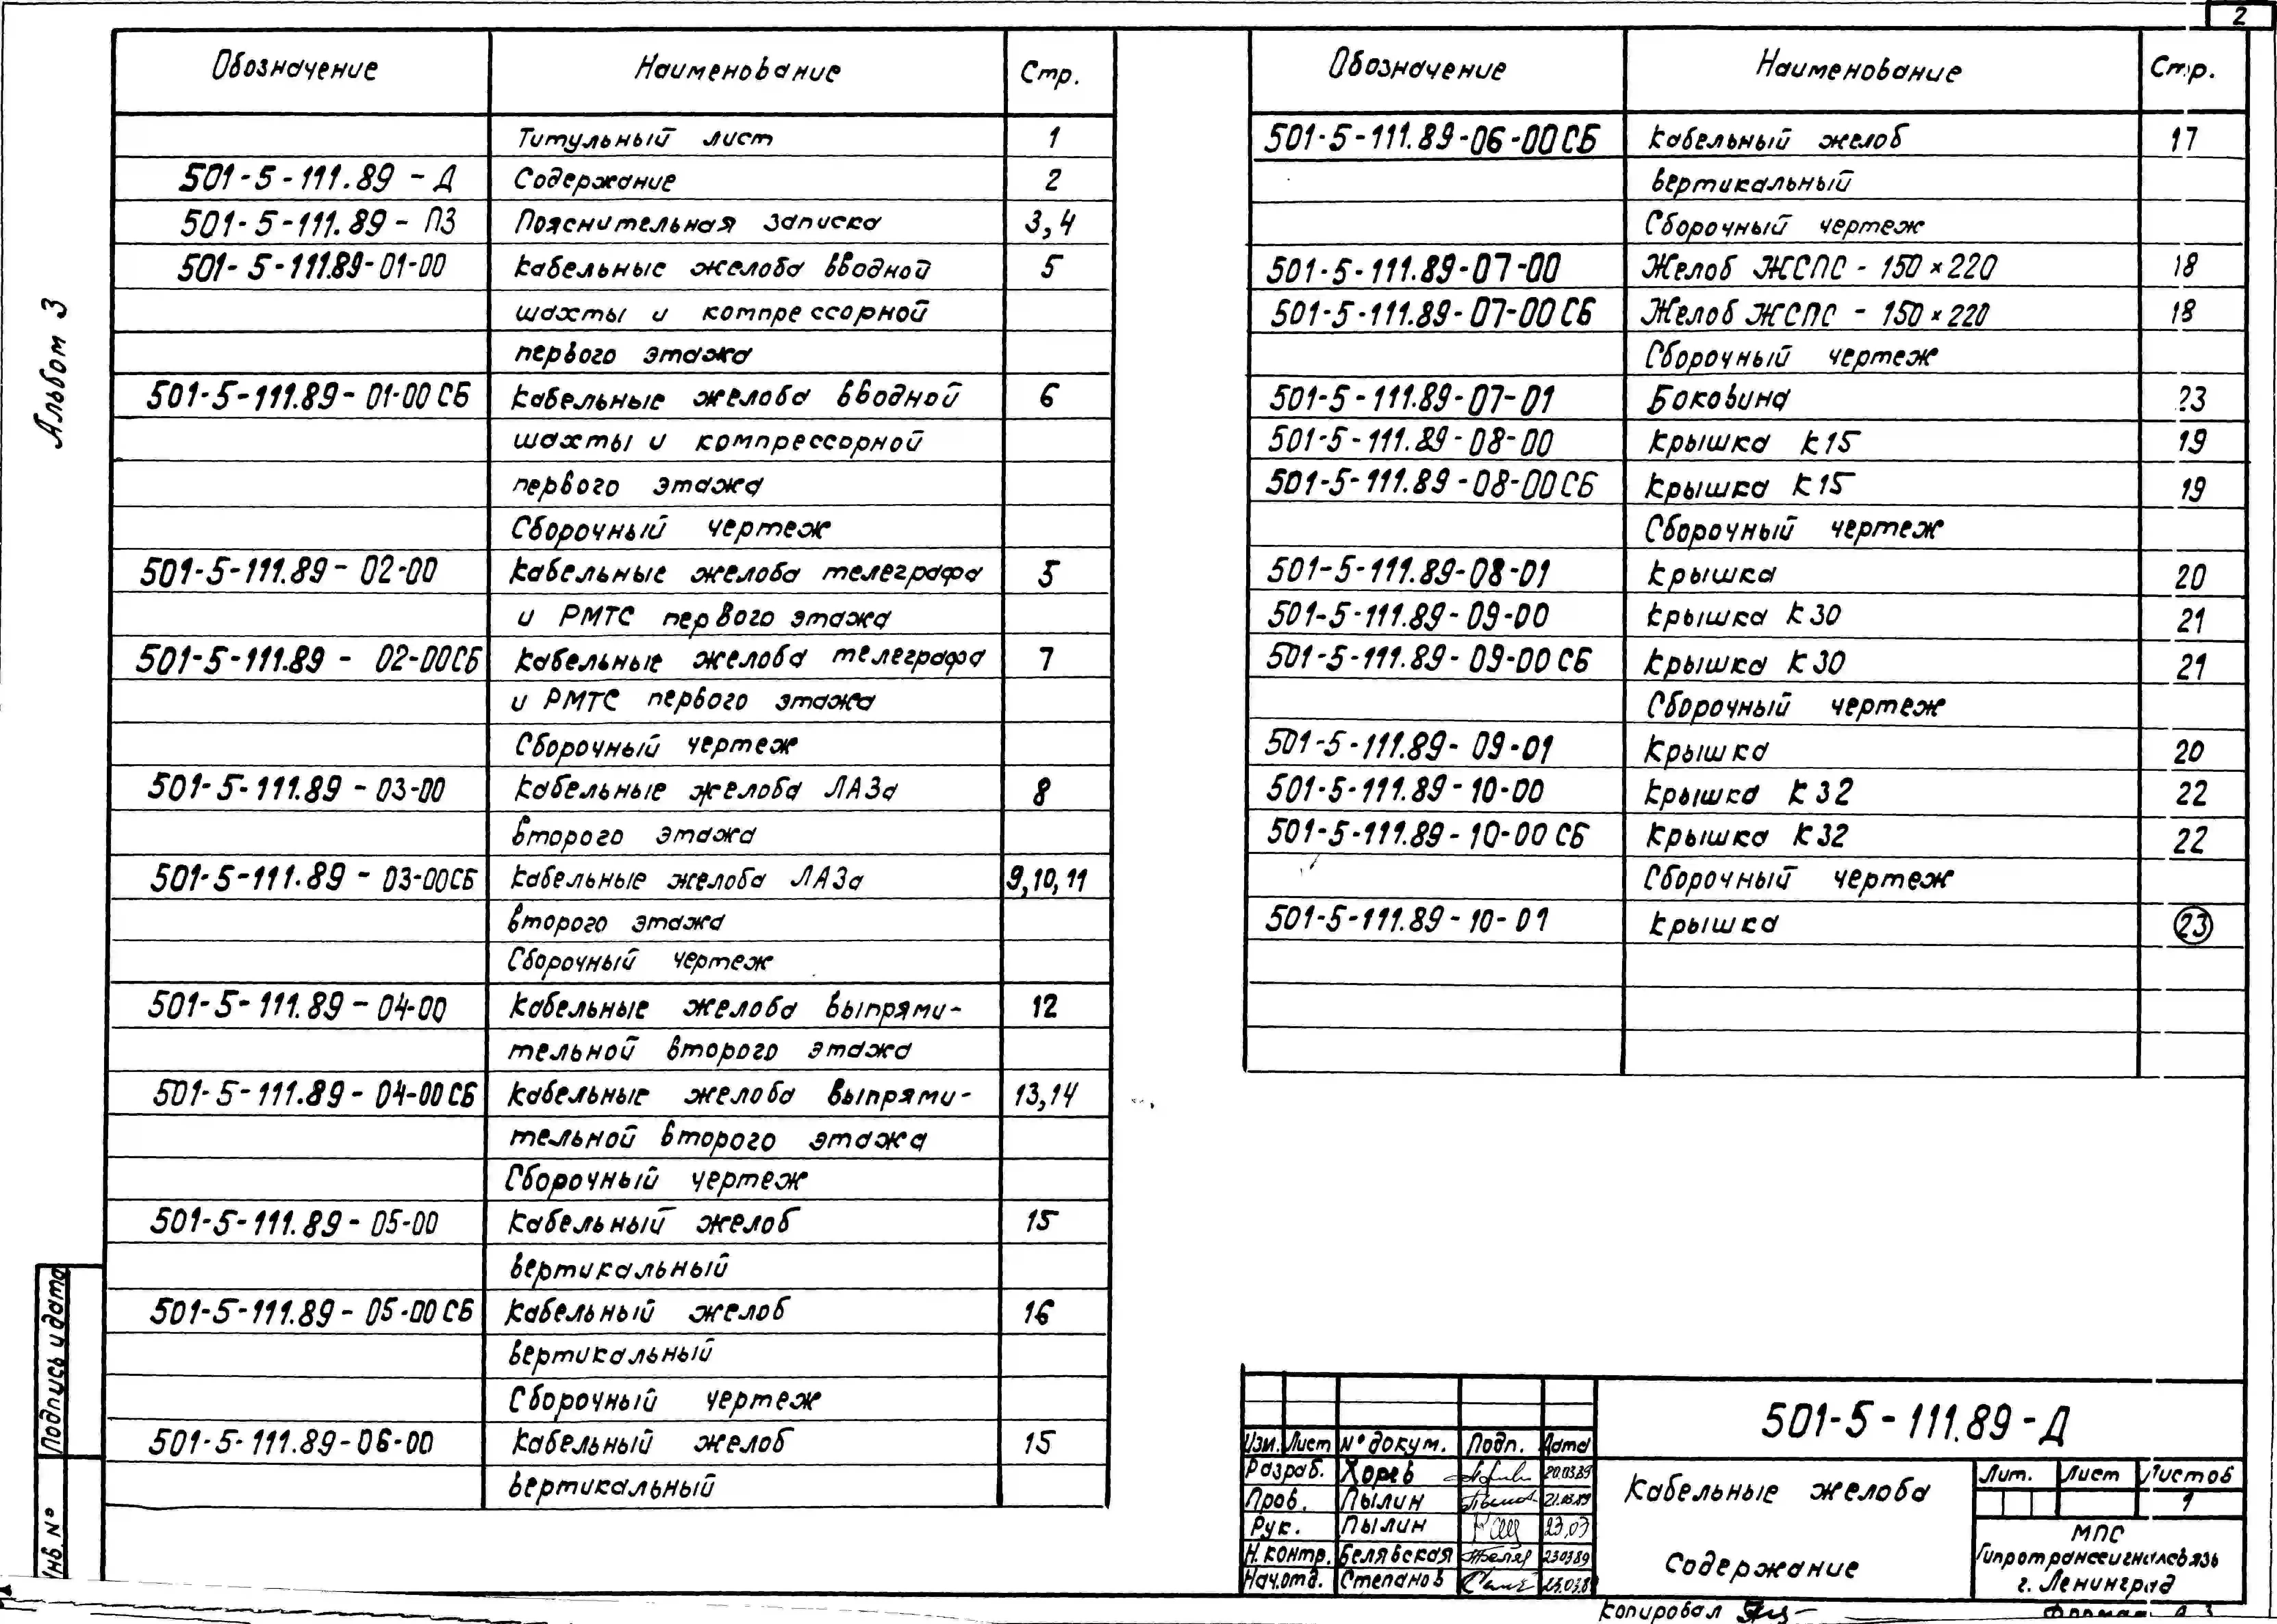 2
Альбом 3
Обозначение Наименование Стр.
Титульный лист 1
501-5-111.89-Д Содержание 2
501-5-111.89-ПЗ Пояснительная записка 3,4
501-5-111.89-01-00 Кабельные желоба вводной 5
шахты и компрессорной
первого этажа
501-5-111.89-01-00СБ Кабельные желоба вводной 6
шахты и компрессорной
первого этажа
Сборочный чертеж
501-5-111.89-02-00 Кабельные желоба телеграфа 5
и РМТС первого этажа
501-5-111.89-02-00СБ Кабельные желоба телеграфа 7
и РМТС первого этажа
Сборочный чертеж
501-5-111.89-03-00 Кабельные желоба ЛАЗа 8
второго этажа
501-5-111.89-03-00СБ Кабельные желоба ЛАЗа 9,10,11
второго этажа
Сборочный чертеж
501-5-111.89-04-00 Кабельные желоба выпрями- 12
тельной второго этажа
501-5-111.89-04-00СБ Кабельные желоба выпрями- 13,14
тельной второго этажа
Сборочный чертеж
501-5-111.89-05-00 Кабельный желоб 15
вертикальный
501-5-111.89-05-00СБ Кабельный желоб 16
вертикальный
Сборочный чертеж
501-5-111.89-06-00 Кабельный желоб 15
вертикальный
Обозначение Наименование Стр.
501-5-111.89-06-00СБ Кабельный желоб 17
вертикальный
Сборочный чертеж
501-5-111.89-07-00 Желоб ЖСПС-150×220 18
501-5-111.89-07-00СБ Желоб ЖСПС-150×220 18
Сборочный чертеж
501-5-111.89-07-01 Боковина 23
501-5-111.89-08-00 Крышка К15 19
501-5-111.89-08-00СБ Крышка К15 19
Сборочный чертеж
501-5-111.89-08-01 Крышка 20
501-5-111.89-09-00 Крышка К30 21
501-5-111.89-09-00СБ Крышка К30 21
Сборочный чертеж
501-5-111.89-09-01 Крышка 20
501-5-111.89-10-00 Крышка К32 22
501-5-111.89-10-00СБ Крышка К32 22
Сборочный чертеж
501-5-111.89-10-01 Крышка 23
Подпись и дата
Инв. №
501-5-111.89-Д
Изм. Лист № докум. Подп. Дата
Разраб. Хорев 20.03.89
Пров. Пылин 21.03.89
Рук. Пылин 23.03
Н.контр. Белявская 23.03.89
Нач.отд. Степанов 23.03.8
Кабельные желоба
Содержание
Лит. Лист Листов
1
МПС
Гипротранссигналсвязь
г. Ленинград
Копировал
Формат А3